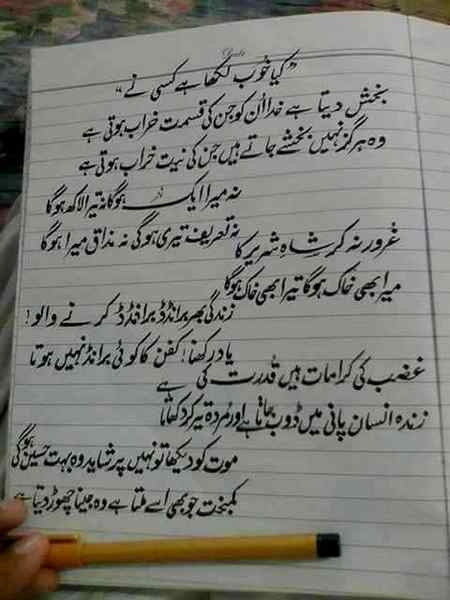 "کیا خوب لکھا ہے کسی نے"
بخش دیتا ہے خدا اُن کو جن کی قسمت خراب ہوتی ہے
وہ ہرگز نہیں بخشے جاتے ہیں جن کی نیت خراب ہوتی ہے
نہ میرا ایک ہوگا نہ تیرا لاکھ ہوگا
نہ تعریف تیری ہوگی نہ مذاق میرا ہوگا
غرور نہ کر شاہِ شریر کا
میرا بھی خاک ہوگا تیرا بھی خاک ہوگا
زندگی بھر برانڈڈ برانڈڈ کرنے والو!
یاد رکھنا! کفن کا کوئی برانڈ نہیں ہوتا
غضب کی کرامات ہیں قدرت کی
زندہ انسان پانی میں ڈوب جاتا ہے اور مُردہ تیر کر دکھاتا ہے
موت کو دیکھا تو نہیں پر شاید وہ بہت حسین ہوگی
کمبخت جو بھی اسے ملتا ہے وہ جینا چھوڑ دیتا ہے